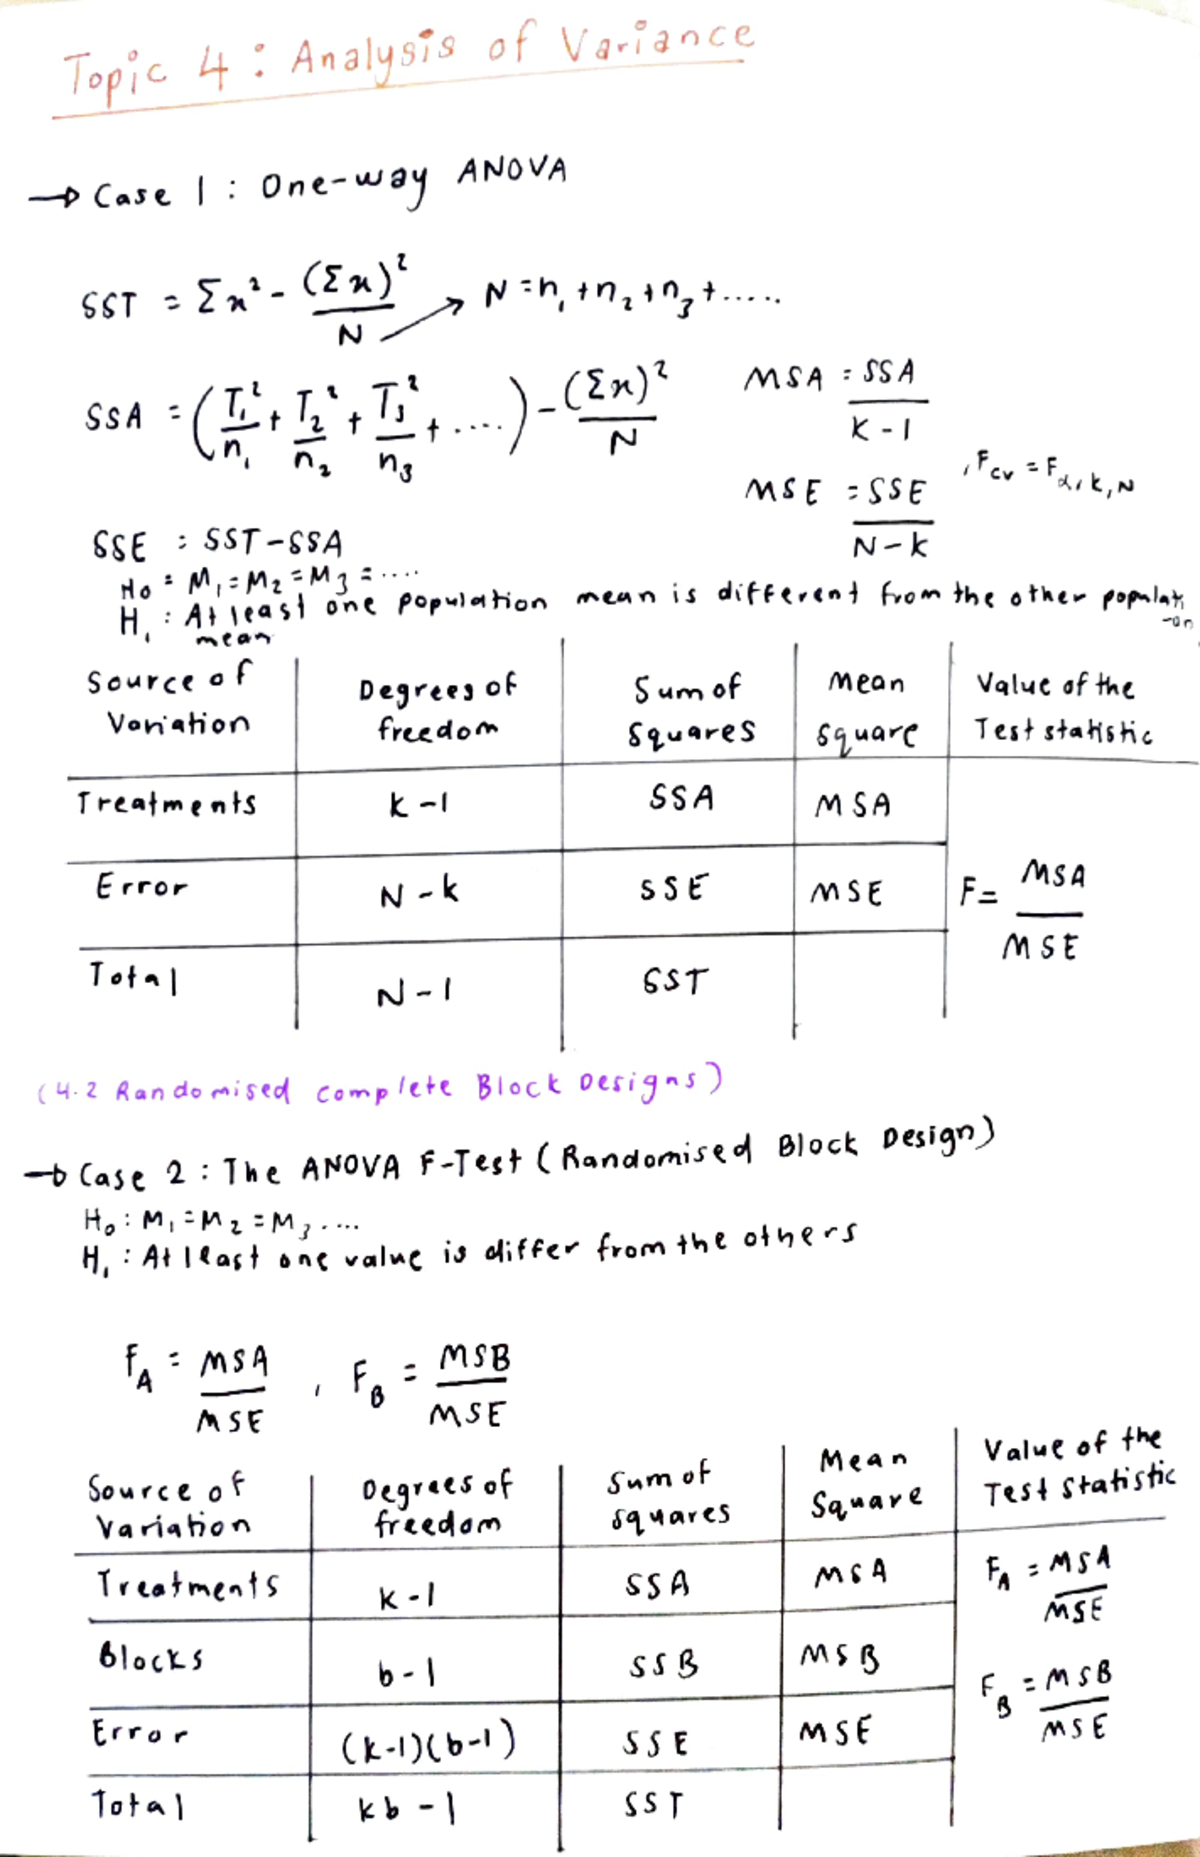 Topic 4 : Analysis of Variance
→ Case 1 : One-way ANOVA
SST = Σx² - (Σx)² / N → N = n₁ + n₂ + n₃ + .....
SSA = (T₁²/n₁ + T₂²/n₂ + T₃²/n₃ + ....) - (Σx)²/N
MSA = SSA / K - 1
MSE = SSE / N - K , Fcv = Fα, k, N
SSE : SST - SSA
H₀ : M₁ = M₂ = M₃ = ....
H₁ : At least one population mean is different from the other populati-on
mean
Source of Variation | Degrees of freedom | Sum of Squares | Mean square | Value of the Test statistic
Treatments | k - 1 | SSA | MSA
Error | N - k | SSE | MSE | F = MSA / MSE
Total | N - 1 | SST
(4.2 Randomised complete Block Designs)
→ Case 2 : The ANOVA F-Test (Randomised Block Design)
H₀ : M₁ = M₂ = M₃ ....
H₁ : At least one value is differ from the others
F_A = MSA / MSE , F_B = MSB / MSE
Source of Variation | Degrees of freedom | Sum of squares | Mean Square | Value of the Test Statistic
Treatments | K - 1 | SSA | MSA | F_A = MSA / MSE
Blocks | b - 1 | SSB | MSB | F_B = MSB / MSE
Error | (k-1)(b-1) | SSE | MSE
Total | kb - 1 | SST